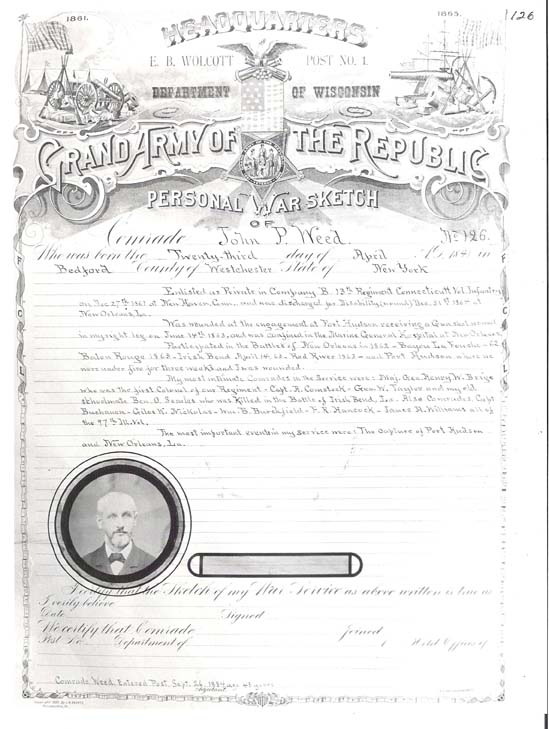 126
1861. HEADQUARTERS 1865.
E. B. WOLCOTT POST NO. 1.
DEPARTMENT OF WISCONSIN
GRAND ARMY OF THE REPUBLIC
PERSONAL WAR SKETCH
OF
Comrade John P. Weed. No 126.
Who was born the Twenty-third day of April A.D. 1841 in
Bedford County of Westchester State of New York
Enlisted as Private in Company B. 13th Regiment Connecticut Vol. Infantry
on Dec 27th 1861 at New Haven, Conn., and was discharged for Disability (wound) Dec. 31st at
New Orleans, La.
Was wounded at the engagement at Port Hudson receiving a Gunshot wound
in my right leg on June 14th 1863, and was confined in the Marine General Hospital at New Orleans
Participated in the Battles of New Orleans in 1862 - Bayou La Fouche - 62
Baton Rouge 1862 - Irish Bend, April 14. 63 - Red River 1863 - and Port Hudson where we
were under fire for three weeks and I was wounded.
My most intimate Comrades in the Service were: Maj. Gen. Henry W. Birge
who was the first Colonel of our Regiment - Capt. A. Comstock - Geo. W. Taylor and my old
schoolmate Ben. A. who was killed in the Battle of Irish Bend, La. Also Comrades, Capt
Buchanan - Giles K. Nickolas - Wm. B. Burchfield - F. R. Hancock - James A. Williams all of
the 97th Ill. Vol.
The most important events in my service were: The Capture of Port Hudson
and New Orleans, La.
I certify that the Sketch of my War Service as above written is true as
I verily believe
Date Signed
We certify that Comrade joined
Post No. Department of
Comrade Weed, Entered Post, Sept. 26,